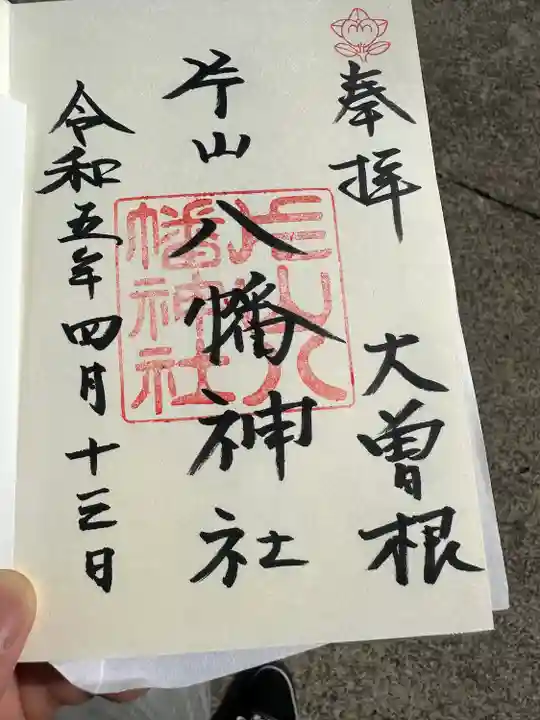 奉拝
大曽根
片山八幡神社
片山八
幡神社
令和五年四月十三日